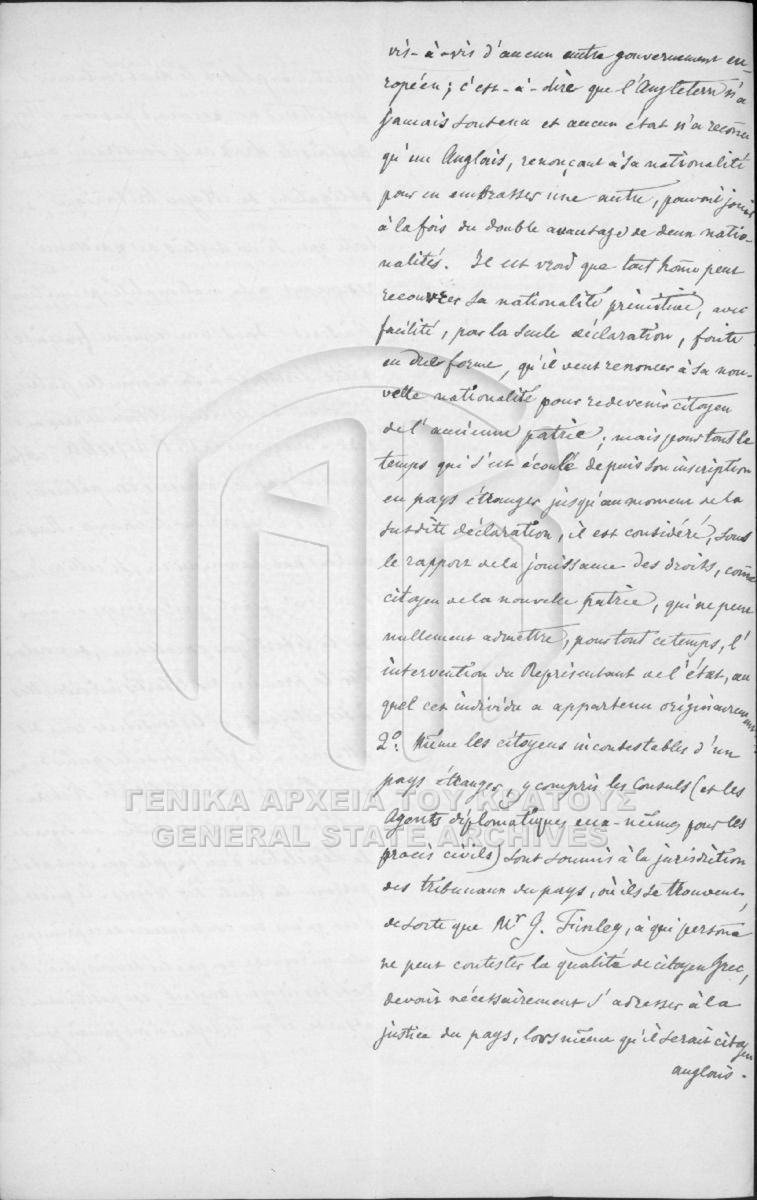 vis-à-vis d'aucun autre gouvernement eu-
ropéen; c'est-à-dire que l'Angleterre n'a
jamais soutenu et aucun état n'a reconnu
qu'un Anglais, renonçant à sa nationalité
pour en embrasser une autre, pouvait jouir
à la fois du double avantage de deux natio-
nalités. Il est vrai que tout homme peut
recouvrer sa nationalité primitive, avec
facilité, par la seule déclaration, faite
en due forme, qu'il veut renoncer à sa nou-
velle nationalité pour redevenir citoyen
de l'ancienne patrie, mais pour tout le
temps qui s'est écoulé depuis son inscription
en pays étranger jusqu'au moment de la
susdite déclaration, il est considéré, sous
le rapport de la jouissance des droits, comme
citoyen de la nouvelle patrie, qui ne peut
nullement admettre, pour tout ce temps, l'
intervention du Représentant de l'état, au
quel cet individu a appartenu originairement
2º. Même les citoyens incontestables d'un
pays étranger, y compris les Consuls (et les
ΓΕΝΙΚΑ ΑΡΧΕΙΑ ΤΟΥ ΚΡΑΤΟΥΣ
Agents diplomatiques eux-mêmes, pour les
GENERAL STATE ARCHIVES
procès civils) sont soumis à la jurisdiction
des tribunaux du pays, où ils se trouvent,
de sorte que Mr G. Finley, à qui personne
ne peut contester la qualité de citoyen Grec,
devait nécessairement s'adresser à la
justice du pays, lors même qu'il serait citoyen
anglais.